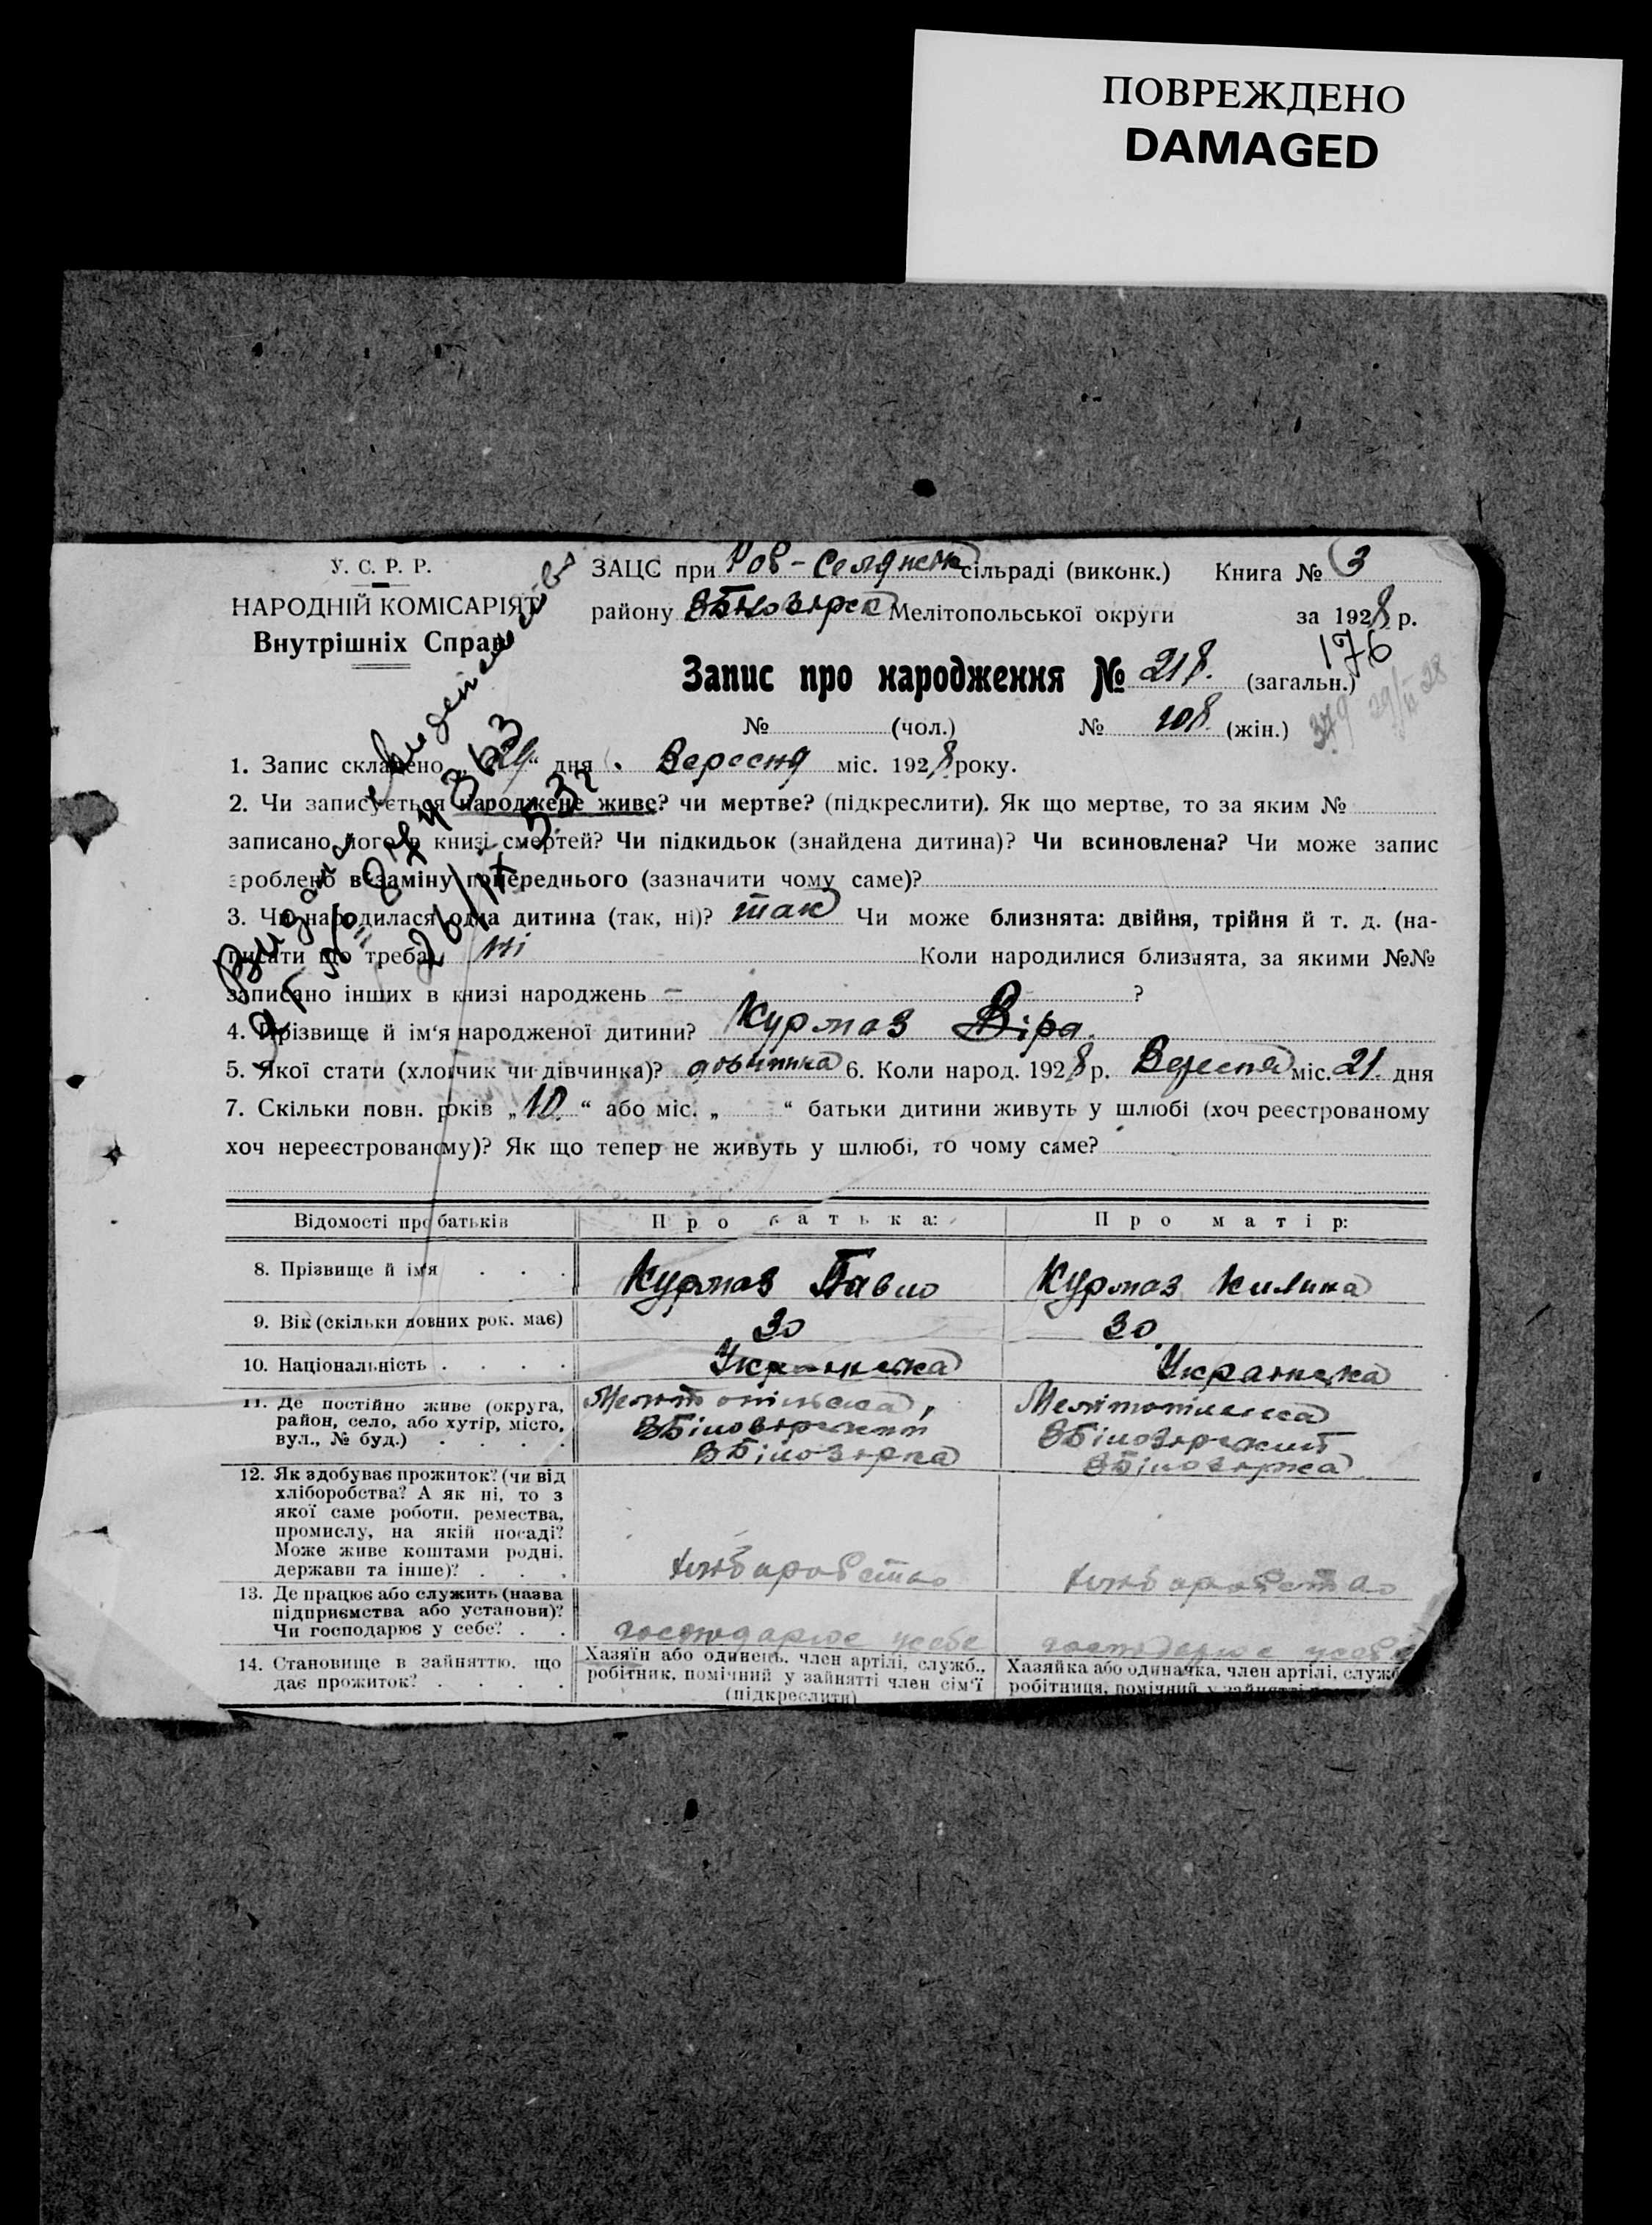 ПОВРЕЖДЕНО
DAMAGED
У. С. Р. Р.
НАРОДНІЙ КОМІСАРІЯТ
Внутрішніх Справ
ЗАЦС при сільраді (виконк.) Книга № 3
району Мелітопольської округи за 1928 р.
176
Запис про народження № 218. (загальн.)
№ (чол.) № 108. (жін.)
379 29/ 28
1. Запис складено „ “ дня Вересня міс. 1928 року.
2. Чи записується народжене живе? чи мертве? (підкреслити). Як що мертве, то за яким №
записано його в книзі смертей? Чи підкидьок (знайдена дитина)? Чи всиновлена? Чи може запис
зроблено взаміну попереднього (зазначити чому саме)?
3. Чи народилася одна дитина (так, ні)? так Чи може близнята: двійня, трійня й т. д. (на-
писати що треба) ні Коли народилися близнята, за якими №№
записано інших в книзі народжень — ?
4. Прізвище й ім'я народженої дитини? Курмаз Віра.
5. Якої стати (хлопчик чи дівчинка)? дівчинка 6. Коли народ. 1928 р. Вересня міс. 21 дня
7. Скільки повн. років „10“ або міс. „ “ батьки дитини живуть у шлюбі (хоч реєстрованому
хоч нереєстрованому)? Як що тепер не живуть у шлюбі, то чому саме?
Видано
Відомості про батьків Про батька: Про матір:
8. Прізвище й ім'я . . . Курмаз Павло Курмаз Килина
9. Вік (скільки повних рок. має) 30 30
10. Національність . . . . Українська Українська
11. Де постійно живе (округа,
район, село, або хутір, місто,
вул., № буд.) . . . .
Мелітопільська, ВБілозірський ВБілозірка
Мелітопільська ВБілозірський ВБілозірка
12. Як здобуває прожиток? (чи від
хліборобства? А як ні, то з
якої саме роботи, ремества,
промислу, на якій посаді?
Може живе коштами родні,
держави та інше)? . . .
хліборобство хліборобство
13. Де працює або служить (назва
підприємства або установи)?
Чи господарює у себе? . .
господарює усебе господарює усебе
14. Становище в зайняттю, що
дає прожиток? . . . .
Хазяїн або одинець, член артілі, служб.,
робітник, помічний у зайнятті член сім'ї
(підкреслити)
Хазяйка або одиначка, член артілі, служб
робітниця, помічний у зайнятті